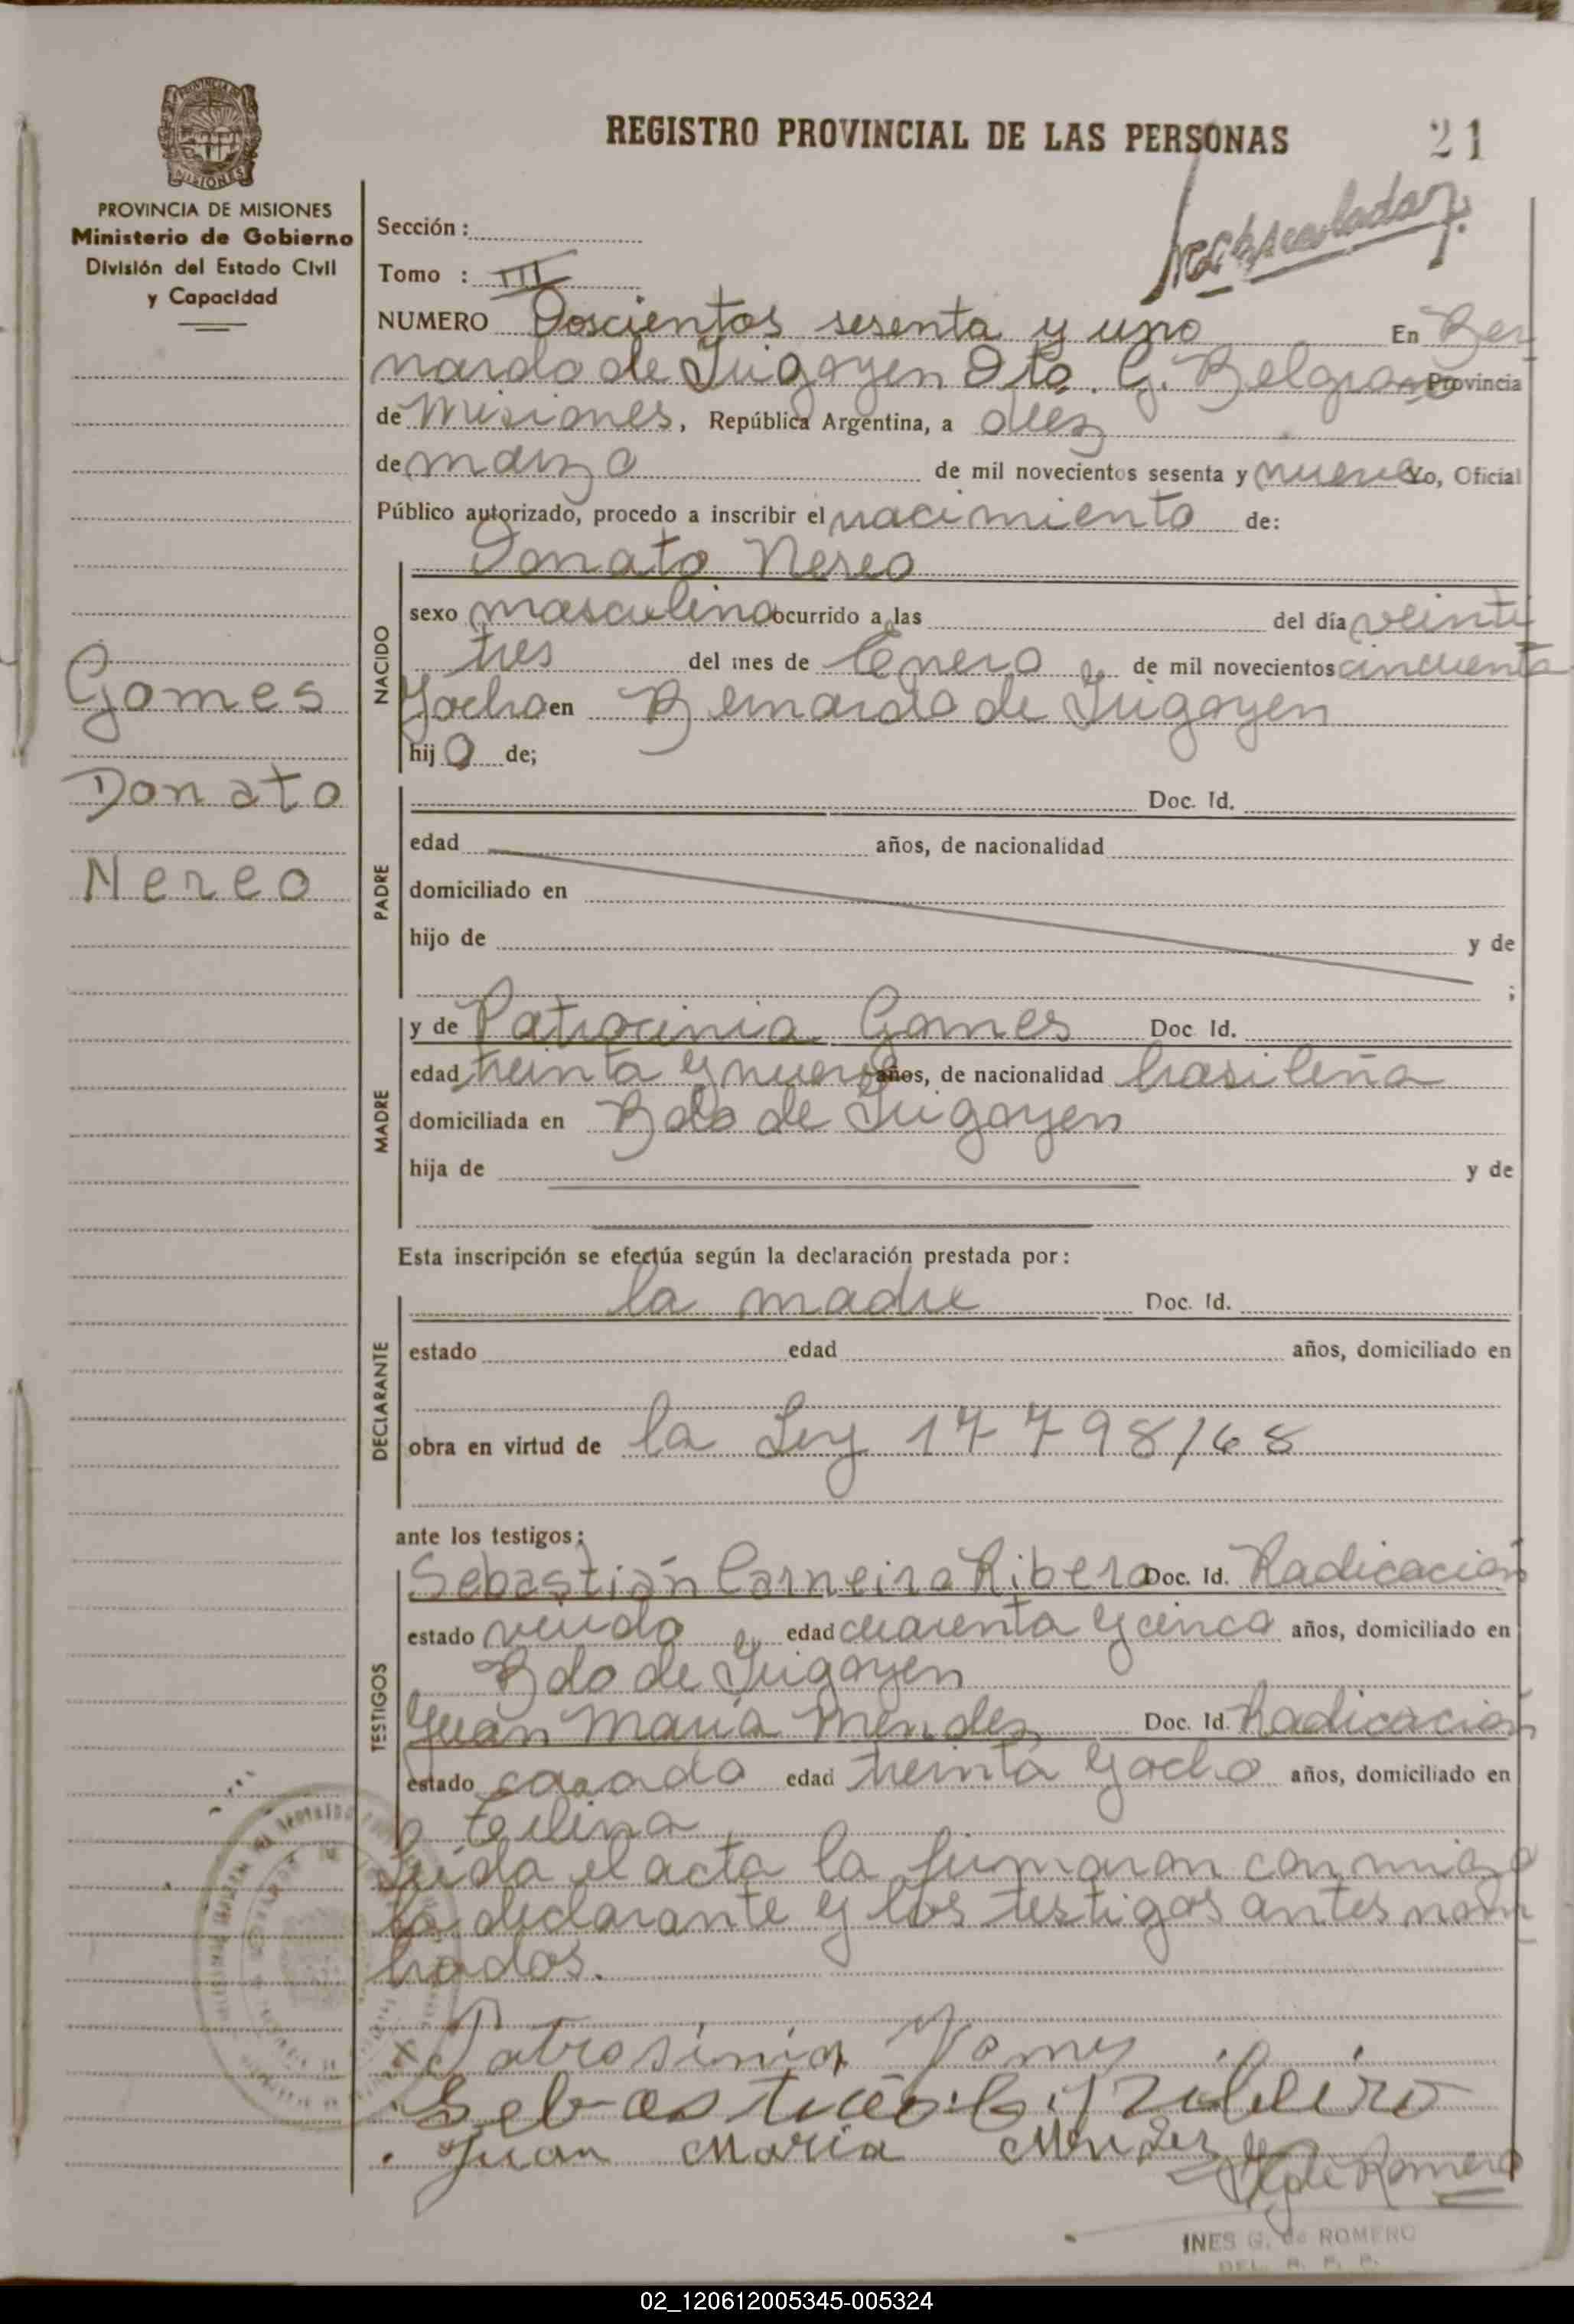 REGISTRO PROVINCIAL DE LAS PERSONAS
21
PROVINCIA DE MISIONES
Ministerio de Gobierno
División del Estado Civil
y Capacidad
Gomes
Donato
Nereo
Sección :
Tomo : III
NUMERO Doscientos sesenta y uno En Ber
nardo de Irigoyen Dto. G. Belgrano Provincia
de Misiones, República Argentina, a diez
de marzo de mil novecientos sesenta y nueve Yo, Oficial
Público autorizado, procedo a inscribir el nacimiento de:
NACIDO
Donato Nereo
sexo masculino ocurrido a las del día veinti
tres del mes de Enero de mil novecientos cincuenta
y ocho en Bernardo de Irigoyen
hijo de;
PADRE
Doc. Id.
edad años, de nacionalidad
domiciliado en
hijo de y de
;
MADRE
y de Patrocinia Gomes Doc Id.
edad treinta y nueve años, de nacionalidad brasileña
domiciliada en Bdo de Irigoyen
hija de y de
Esta inscripción se efectúa según la declaración prestada por:
DECLARANTE
la madre Doc. Id.
estado edad años, domiciliado en
obra en virtud de la Ley 17798/68
ante los testigos:
TESTIGOS
Sebastián Carneiro Ribero Doc. Id. Radicación
estado viudo edad cuarenta y cinco años, domiciliado en
Bdo de Irigoyen
Juan María Mendez Doc. Id. Radicación
estado casado edad treinta y ocho años, domiciliado en
Leida el acta la firmaron conmigo
la declarante y los testigos antes nom
brados.
Patrosinia Gomes
Sebastião C. Ribeiro
Juan María Méndez
I G de Romero
INES G. de ROMERO
DEL. R. P. P.
02_120612005345-005324